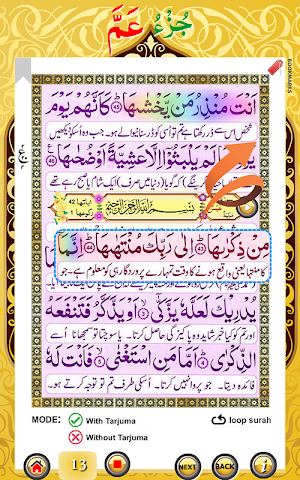 جُزْءُ عَمَّ
BOOKMARKS
اَنْتَ مُنْذِرُ مَنْ يَّخْشٰىهَا ﴿45﴾ كَاَنَّهُمْ يَوْمَ
شخص اس سے ڈر رکھتا ہے تم اُسی کو ڈر سنانیوالے ہو۔ جب وہ اسکو دیکھیں
لَمْ يَلْبَثُوْٓا اِلَّا عَشِيَّةً اَوْ ضُحٰىهَا
گے) کہ گویا (دنیا میں صرف) ایک شام یا صبح رہے تھے
اياتها 42
بِسْمِ اللّٰهِ الرَّحْمٰنِ الرَّحِيْمِ
ركوعها 1
مِنْ ذِكْرٰىهَا ﴿43﴾ اِلٰى رَبِّكَ مُنْتَهٰىهَا ﴿44﴾ اِنَّمَآ
کا منتہا یعنی واقع ہونے کا وقت تمہارے پروردگار ہی کو معلوم ہے۔ جو
يُدْرِيْكَ لَعَلَّهٗ يَزَّكّٰٓى ﴿3﴾ اَوْ يَذَّكَّرُ فَتَنْفَعَهُ
تم کو کیا خبر شاید وہ پاکیزگی حاصل کرتا۔ یا سوچتا تو سمجھانا اُسے
الذِّكْرٰى ﴿4﴾ اَمَّا مَنِ اسْتَغْنٰى ﴿5﴾ فَاَنْتَ لَهٗ
فائدہ دیتا۔ جو پروا نہیں کرتا۔ اُسکی طرف تم تو توجہ کرتے ہو۔
MODE: With Tarjuma loop surah
Without Tarjuma
13 NEXT BACK i ?